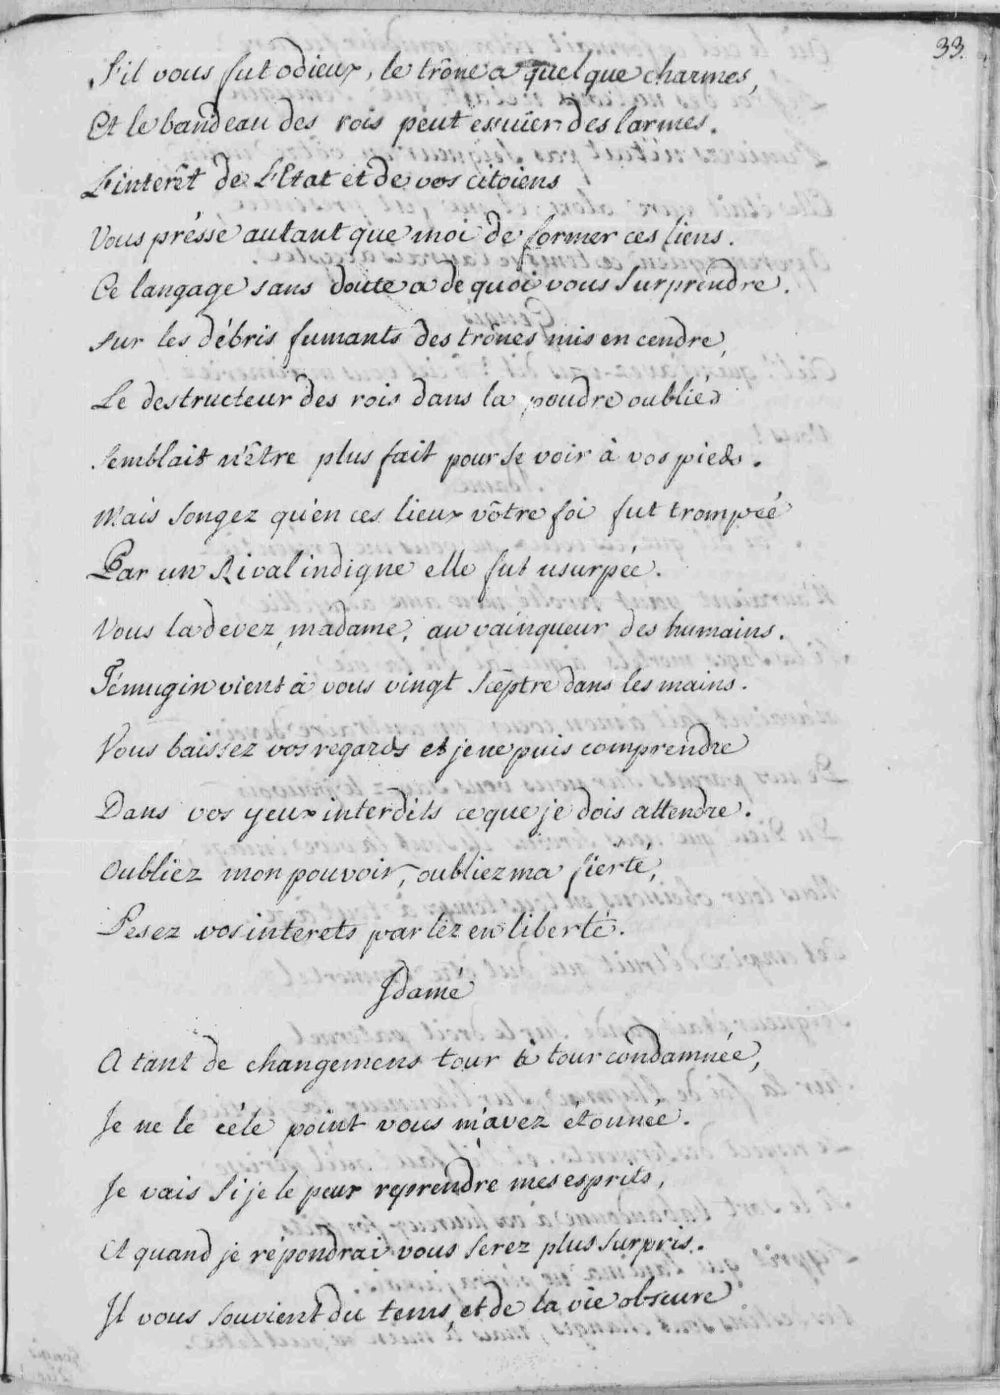 33.
S'il vous fut odieux, le trône a quelque charmes,
Et le bandeau des rois peut essuier des larmes.
L'interêt de L'Etat et de vos citoiens
Vous présse autant que moi de former ces liens.
Ce langage sans doute a de quoi vous surprendre.
sur les débris fumants des trônes mis en cendre,
Le destructeur des rois dans la poudre oubliés
Semblait n'être plus fait pour se voir à vos pieds.
Mais songez qu'en ces lieux vôtre foi fut trompéé
Par un Rival indigne elle fut usurpée.
Vous la devez, madame, au vainqueur des humains.
Témugin vient à vous vingt Scèptre dans les mains.
Vous baissez vos regards et je ne puis comprendre
Dans vos yeux interdits ce que je dois attendre.
Oubliez mon pouvoir, oubliez ma fierté,
Pesez vos interets parlez en liberté.
Idamé
A tant de changemens tour à tour condamnée,
Je ne le céle point vous m'avez étonnée.
Je vais si je le peux reprendre mes esprits,
Et quand je répondrai vous serez plus surpris.
Il vous souvient du tems et de la vie obscure